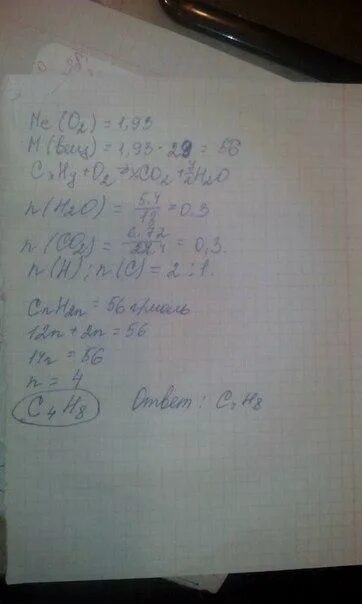 Mс (O2) = 1,93
M (вещ) = 1,93 · 29 = 56
CxHy + O2 = xCO2 + y/2 H2O
n (H2O) = 5.4/18 = 0.3
n (CO2) = 6.72/22.4 = 0,3
n (H) : n (C) = 2 : 1.
CnH2n = 56 гр/моль
12n + 2n = 56
14n = 56
n = 4
C4H8 Ответ : C4H8